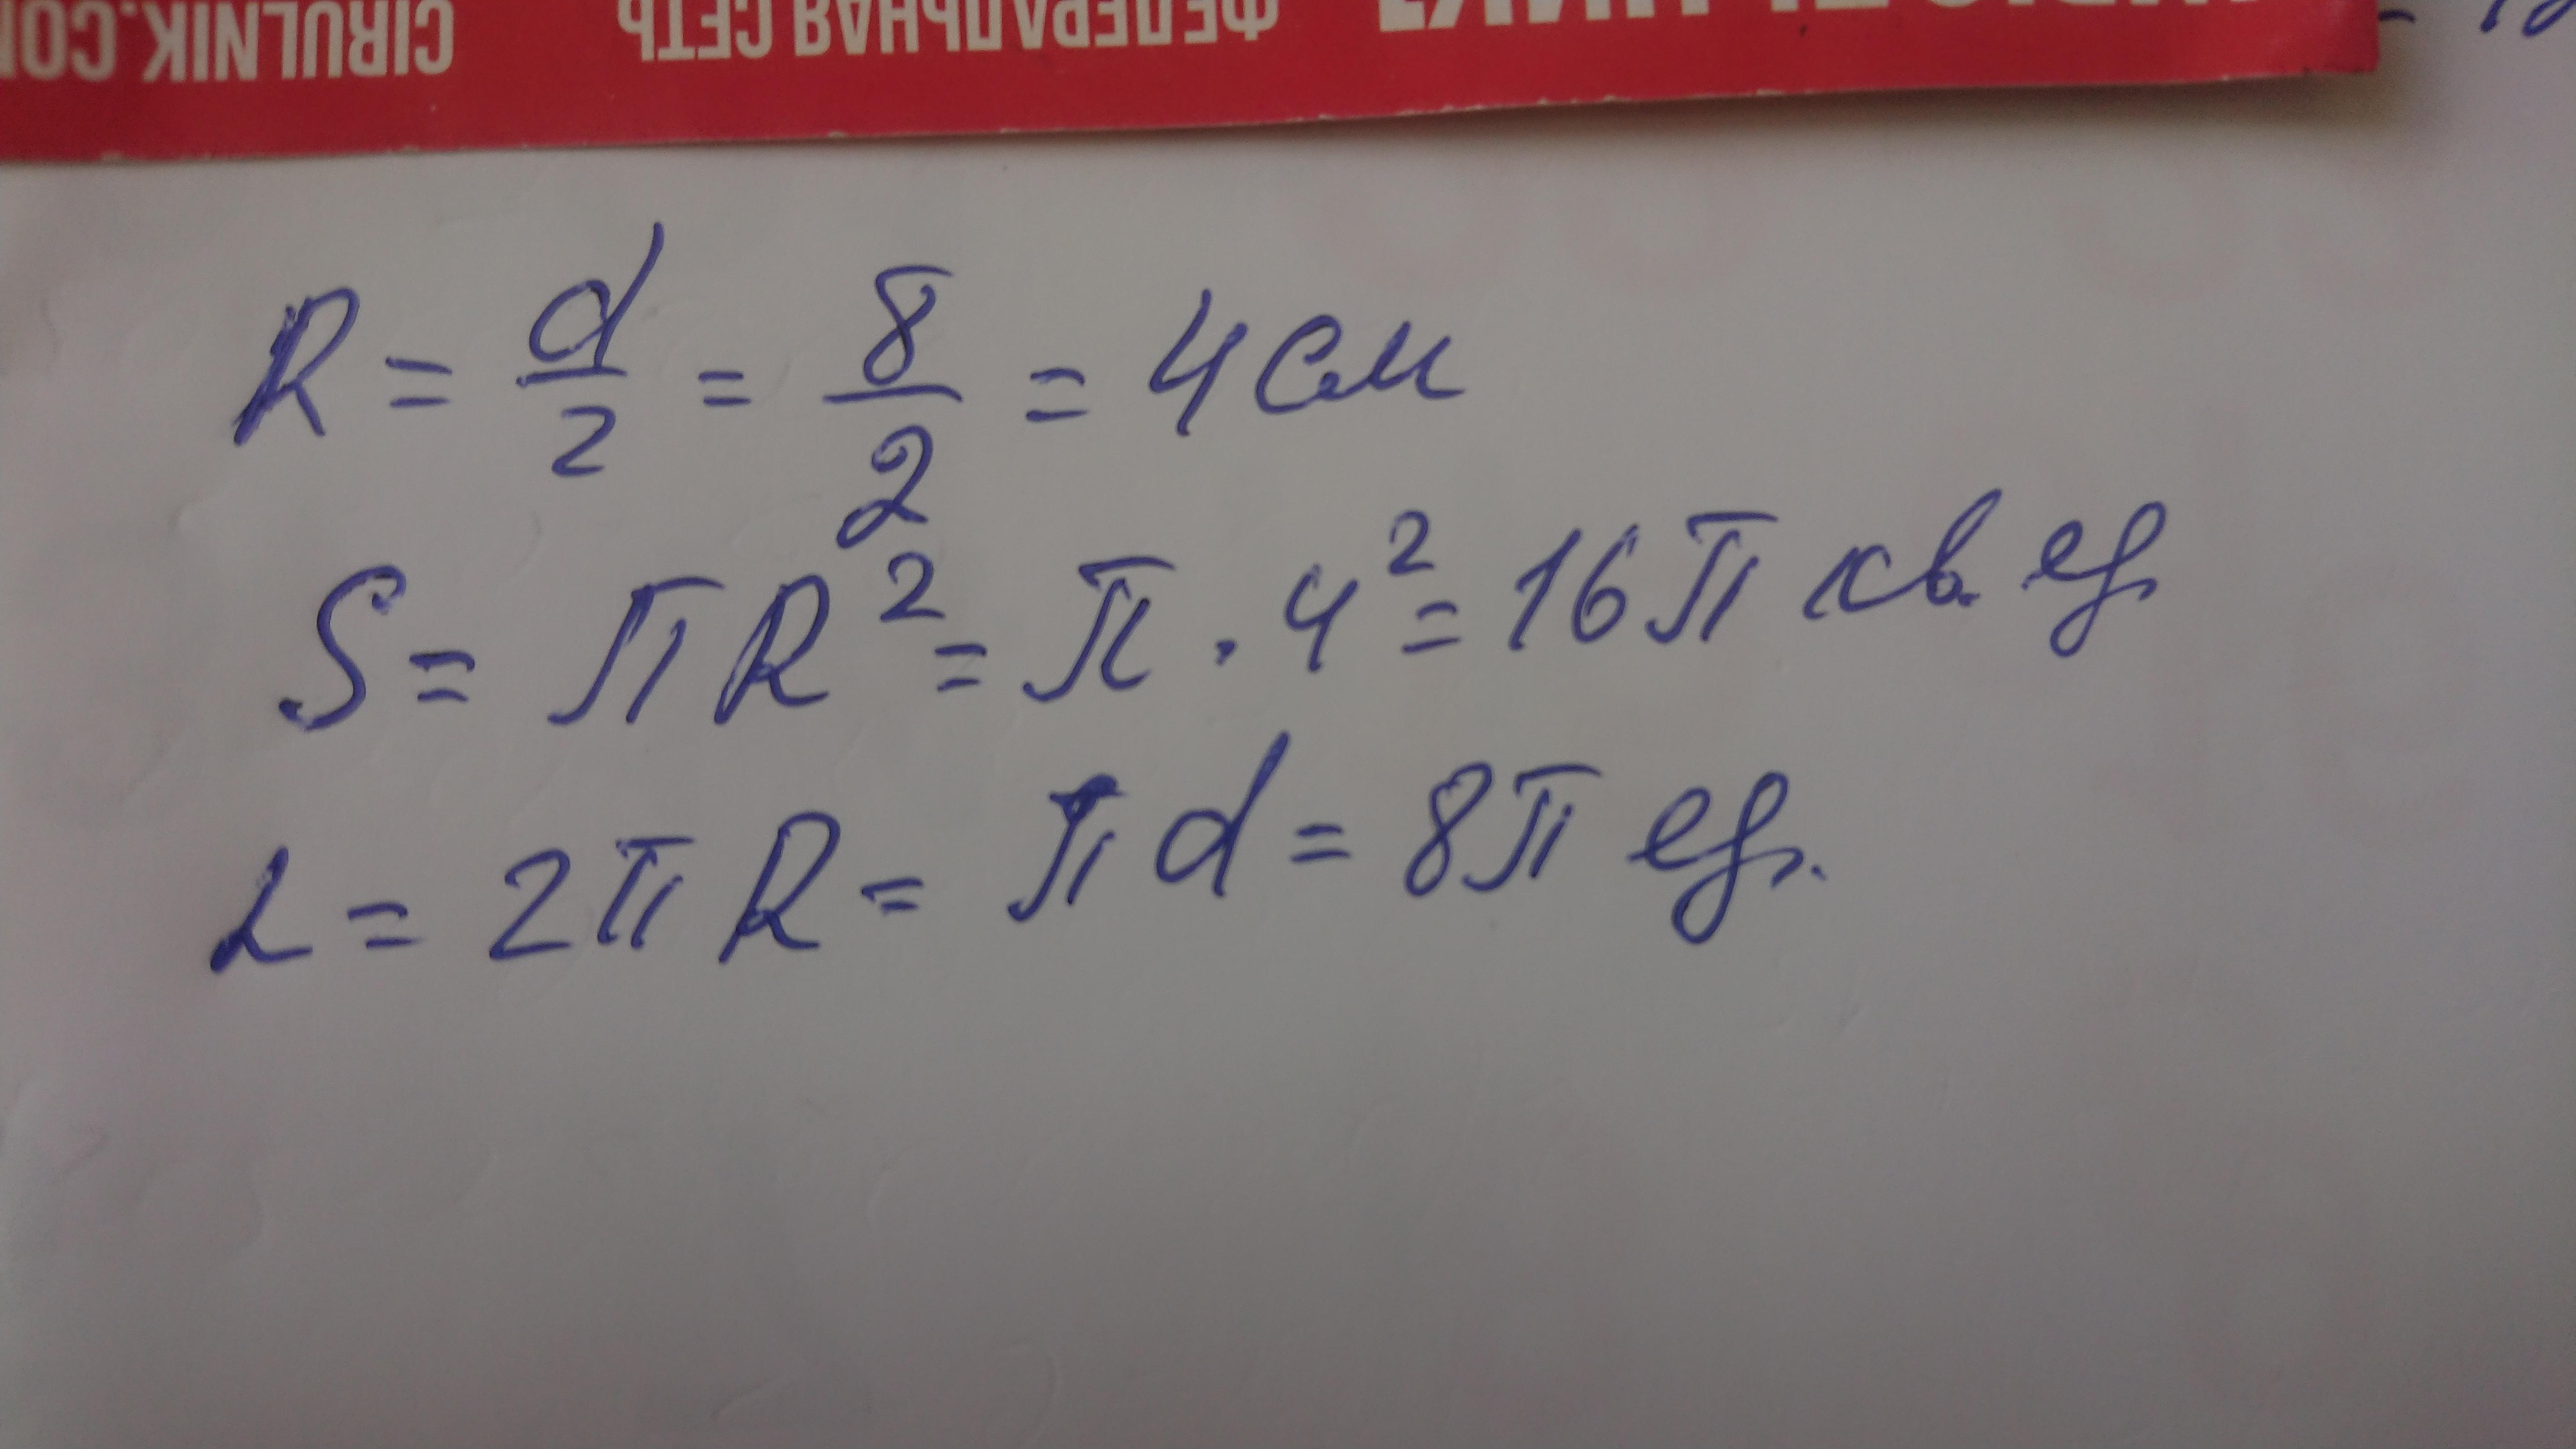 CIRULNIK.CO
ФЕДЕРАЛЬНАЯ СЕТЬ
R = d/2 = 8/2 = 4 см
S = πR² = π · 4² = 16π кв. ед
L = 2πR = πd = 8π ед.